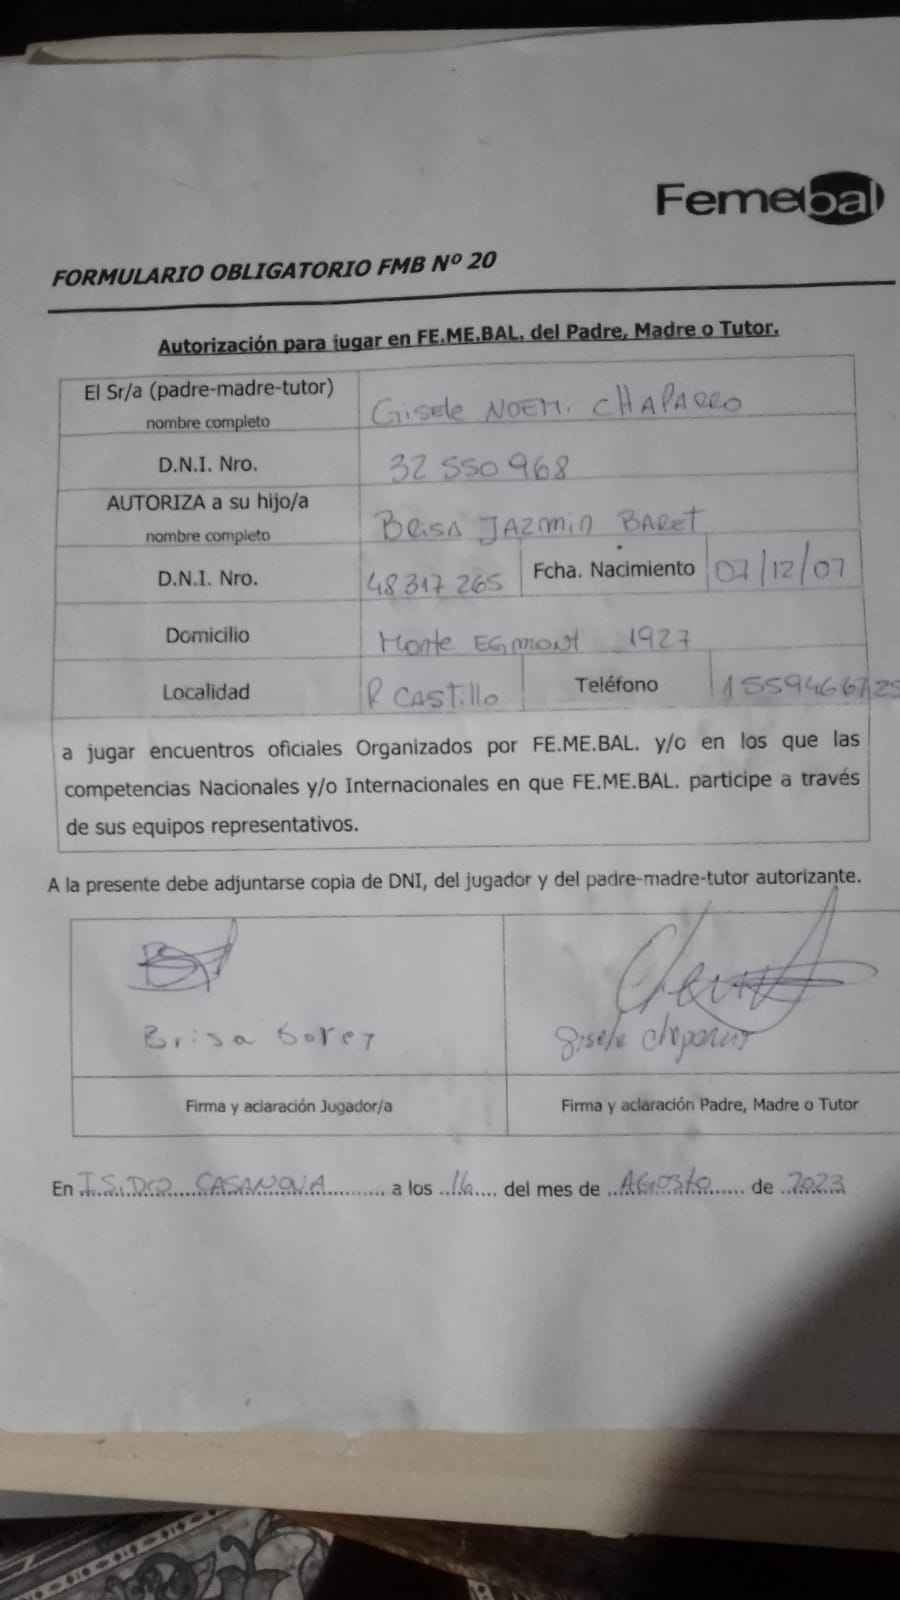 Femebal
FORMULARIO OBLIGATORIO FMB Nº 20
Autorización para jugar en FE.ME.BAL. del Padre, Madre o Tutor.
El Sr/a (padre-madre-tutor)
nombre completo
Gisele NOEMI CHAPARRO
D.N.I. Nro.
32 550 968
AUTORIZA a su hijo/a
nombre completo
BRISA JAZMIN BARET
D.N.I. Nro.
48317 265
Fcha. Nacimiento
07/12/07
Domicilio
Monte EGMONT 1927
Localidad
R CASTillo
Teléfono
a jugar encuentros oficiales Organizados por FE.ME.BAL. y/o en los que las
competencias Nacionales y/o Internacionales en que FE.ME.BAL. participe a través
de sus equipos representativos.
A la presente debe adjuntarse copia de DNI, del jugador y del padre-madre-tutor autorizante.
Brisa
gisele chaparro
Firma y aclaración Jugador/a
Firma y aclaración Padre, Madre o Tutor
En I.SiDRO CASANOVA a los 16 del mes de AGOSTO de 2023